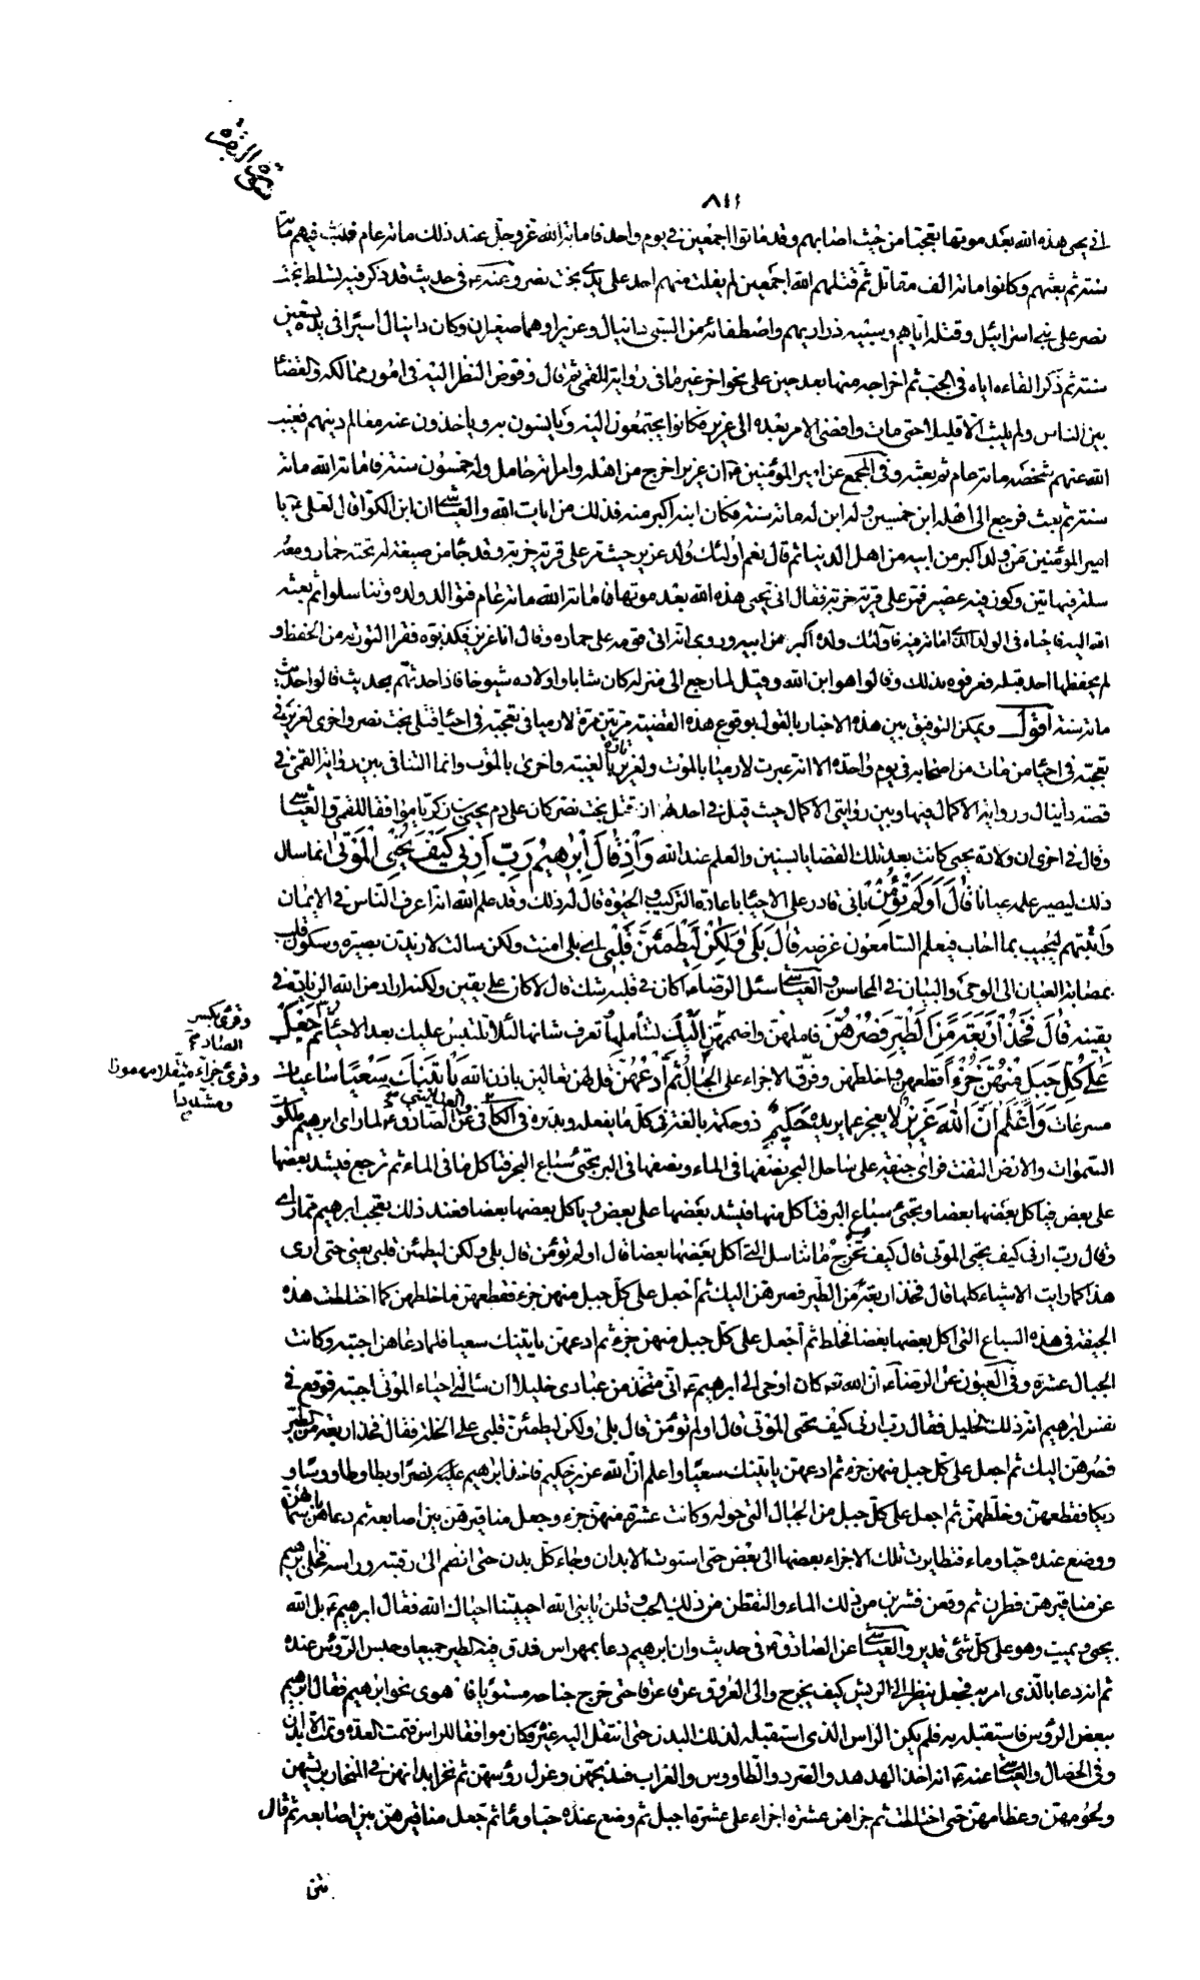 سورة البقرة
٨١١
اني يحيى هذه الله بعد موتها تعجبا من حيث اصابهم وقد ماتوا اجمعين في يوم واحد فاماته الله عز وجل عند ذلك مائة عام فلبث فيهم مائة
سنة ثم بعثهم وكانوا مائة الف مقاتل ثم قتلهم الله اجمعين لم يفلت منهم احد على يدي بخت نصر وعنه ع في حديث قد ذكر فيه تسلط بخت
نصر على بني اسرائيل وقتله اياهم وسبيه ذراريهم واصطفائه من السبي دانيال وعزيرا وهما صغيران وكان دانيال اسيرا في يده تسعين
سنة ثم ذكر القاءه اياه في الجب ثم اخراجه منها بعد حين على نحو اخر غير ما في رواية القمي ثم قال وفوض النظر اليه في امور ممالكه والقضاء
بين الناس ولم يلبث الا قليلا حتى مات وافضى الامر بعده الى عزير فكانوا يجتمعون اليه ويانسون به وياخذون عنه معالم دينهم فغيب
الله عنهم شخصه مائة عام ثم بعثه وفي المجمع عن امير المؤمنين ع ان عزيرا خرج من اهله وامراته حامل وله خمسون سنة فاماته الله مائة
سنة ثم بعث فرجع الى اهله ابن خمسين وله ابن له مائة سنة فكان ابنه اكبر منه فذلك من ايات الله والعياشي ان ابن الكوا قال لعلي ع يا
امير المؤمنين من ولد اكبر من ابيه من اهل الدنيا ثم قال نعم اولئك ولد عزير حيث مر على قرية خربة وقد جاء من ضيعة له تحته حمار ومعه
سلة فيها تين وكوز فيه عصير فمر على قرية خربة فقال انى يحيى هذه الله بعد موتها فاماته الله مائة عام فتوالد ولده وتناسلوا ثم بعثه
الله اليه فاحياه في المولد الذي اماته فيه فاولئك ولده اكبر من ابيه وروي انه اتى قومه على حماره وقال انا عزير فكذبوه فقرا التورية من الحفظ و
لم يحفظها احد قبله فعرفوه بذلك وقالوا هو ابن الله وقيل لما رجع الى منزله كان شابا واولاده شيوخا فاذا حدثهم بحديث قالوا حديث
مائة سنة اقول ويمكن التوفيق بين هذه الاخبار بالقول بوقوع هذه القضية مرتين مرة لارميا في تعجبه في احياء قتلى بخت نصر واخرى لعزير في
تعجبه في احياء من مات من اصحابه في يوم واحد الا انه عبرت لارميا بالموت ولعزير تارة بالغيبة واخرى بالموت وانما التنافي بين رواية القمي في
قصة دانيال ورواية الاكمال فيها وبين روايتي الاكمال حيث قيل في احدهما ان قتل بخت نصر كان على دم يحيى بن زكريا موافقا للقمي والعياشي
وقال في اخرى ان ولادة يحيى كانت بعد تلك القضايا بسنين والعلم عند الله وَاِذْ قَالَ اِبْرٰهِيمُ رَبِّ اَرِنِي كَيْفَ تُحْيِي الْمَوْتىٰ انما سال
ذلك ليصير علمه عيانا قَالَ اَوَلَمْ تُؤْمِنْ باني قادر على الاحياء باعادة التركيب والحيوة قال له ذلك وقد علم الله انه اعرف الناس في الايمان
واثبتهم ليجيب بما اجاب فيعلم السامعون غرضه قَالَ بَلىٰ وَلٰكِنْ لِيَطْمَئِنَّ قَلْبِي اي بلى امنت ولكن سالت لازيد بصيرة وسكون قلب
بمضامة العيان الى الوحي والبيان في المحاسن والعياشي سئل الرضا ع اكان في قلبه شك قال لا كان على يقين ولكنه اراد من الله الزيادة في
يقينه قَالَ فَخُذْ اَرْبَعَةً مِنَ الطَّيْرِ فَصُرْهُنَّ فاملهن واضممهن اِلَيْكَ لتتاملها وتعرف شانها لئلا تلتبس عليك بعد الاحياء ثُمَّ اجْعَلْ
وقرئ بكسر
الصاد
عَلىٰ كُلِّ جَبَلٍ مِنْهُنَّ جُزْءً اقطعهن واخلطهن وفرق الاجزاء على الجبال ثُمَّ ادْعُهُنَّ قل لهن تعالين باذن الله يَأْتِينَكَ سَعْيًا ساعيات
وقرئ جزاء مثقلا مهموزا
ومشددا
مسرعات وَاعْلَمْ اَنَّ اللهَ عَزِيزٌ لا يعجز عما يريده حَكِيمٌ ذو حكمة بالغة في كل ما يفعله ويذره في الكافي والعياشي عن الصادق ع لما راى ابرهيم ملكوت
السموات والارض التفت فراى جيفة على ساحل البحر نصفها في الماء ونصفها في البر تجئ سباع البحر فتاكل ما في الماء ثم ترجع فيشد بعضها
على بعض فياكل بعضها بعضا وتجئ سباع البر فتاكل منها فيشد بعضها على بعض وياكل بعضها بعضا فعند ذلك تعجب ابرهيم مما راى
وقال رب ارني كيف تحيي الموتى قال كيف تخرج ما تناسل التي اكل بعضها بعضا قال اولم تؤمن قال بلى ولكن ليطمئن قلبي يعني حتى ارى
هذا كما رايت الاشياء كلها قال فخذ اربعة من الطير فصرهن اليك ثم اجعل على كل جبل منهن جزء فقطعهن واخلطهن كما اختلطت هذه
الجيفة في هذه السباع التي اكل بعضها بعضا فخلط ثم اجعل على كل جبل منهن جزء ثم ادعهن ياتينك سعيا فلما دعاهن اجبنه وكانت
الجبال عشرة وفي العيون عن الرضا ع ان الله تع كان اوحى الى ابرهيم ع اني متخذ من عبادي خليلا ان سالني احياء الموتى اجبته فوقع في
نفس ابرهيم انه ذلك الخليل فقال رب ارني كيف تحيي الموتى قال اولم تؤمن قال بلى ولكن ليطمئن قلبي على الخلة فقال فخذ اربعة من الطير
فصرهن اليك ثم اجعل على كل جبل منهن جزء ثم ادعهن ياتينك سعيا واعلم ان الله عزيز حكيم فاخذ ابرهيم عليه نصرا وبطا وطاووسا و
ديكا فقطعهن وخلطهن ثم اجعل على كل جبل من الجبال التي حوله وكانت عشرة منهن جزء وجعل مناقيرهن بين اصابعه ثم دعاهن باسمائهن
ووضع عنده حبا وماء فتطايرت تلك الاجزاء بعضها الى بعض حتى استوت الابدان وجاء كل بدن حتى انضم الى رقبته وراسه فخلى ابرهيم
عن مناقيرهن فطرن ثم وقعن فشربن من ذلك الماء والتقطن من ذلك الحب وقلن يا نبي الله احييتنا احياك الله فقال ابرهيم ع بل الله
يحيي ويميت وهو على كل شئ قدير والعياشي عن الصادق ع في حديث وان ابرهيم دعا بمهراس فدق فيه الطير جميعا وحبس الرؤس عنده
ثم انه دعا بالذي امر به فجعل ينظر الى الريش كيف يخرج والى العروق عرقا عرقا حتى خرج جناحه مستويا فاهوى نحو ابرهيم فقال ابرهيم
ببعض الرؤس فاستقبله به فلم يكن الراس الذي استقبله لذلك البدن حتى انتقل اليه غيره فكان موافقا للراس فتمت العدة وتمت الابدان
وفي الخصال والعياشي عنه ع انه اخذ الهدهد والصرد والطاووس والغراب فذبحهن وعزل رؤسهن ثم نحز ابدانهن في المنحاز بريشهن
ولحومهن وعظامهن حتى اختلطت ثم جزاهن عشرة اجزاء على عشرة اجبل ثم وضع عنده حبا وماء ثم جعل مناقيرهن بين اصابعه ثم قال